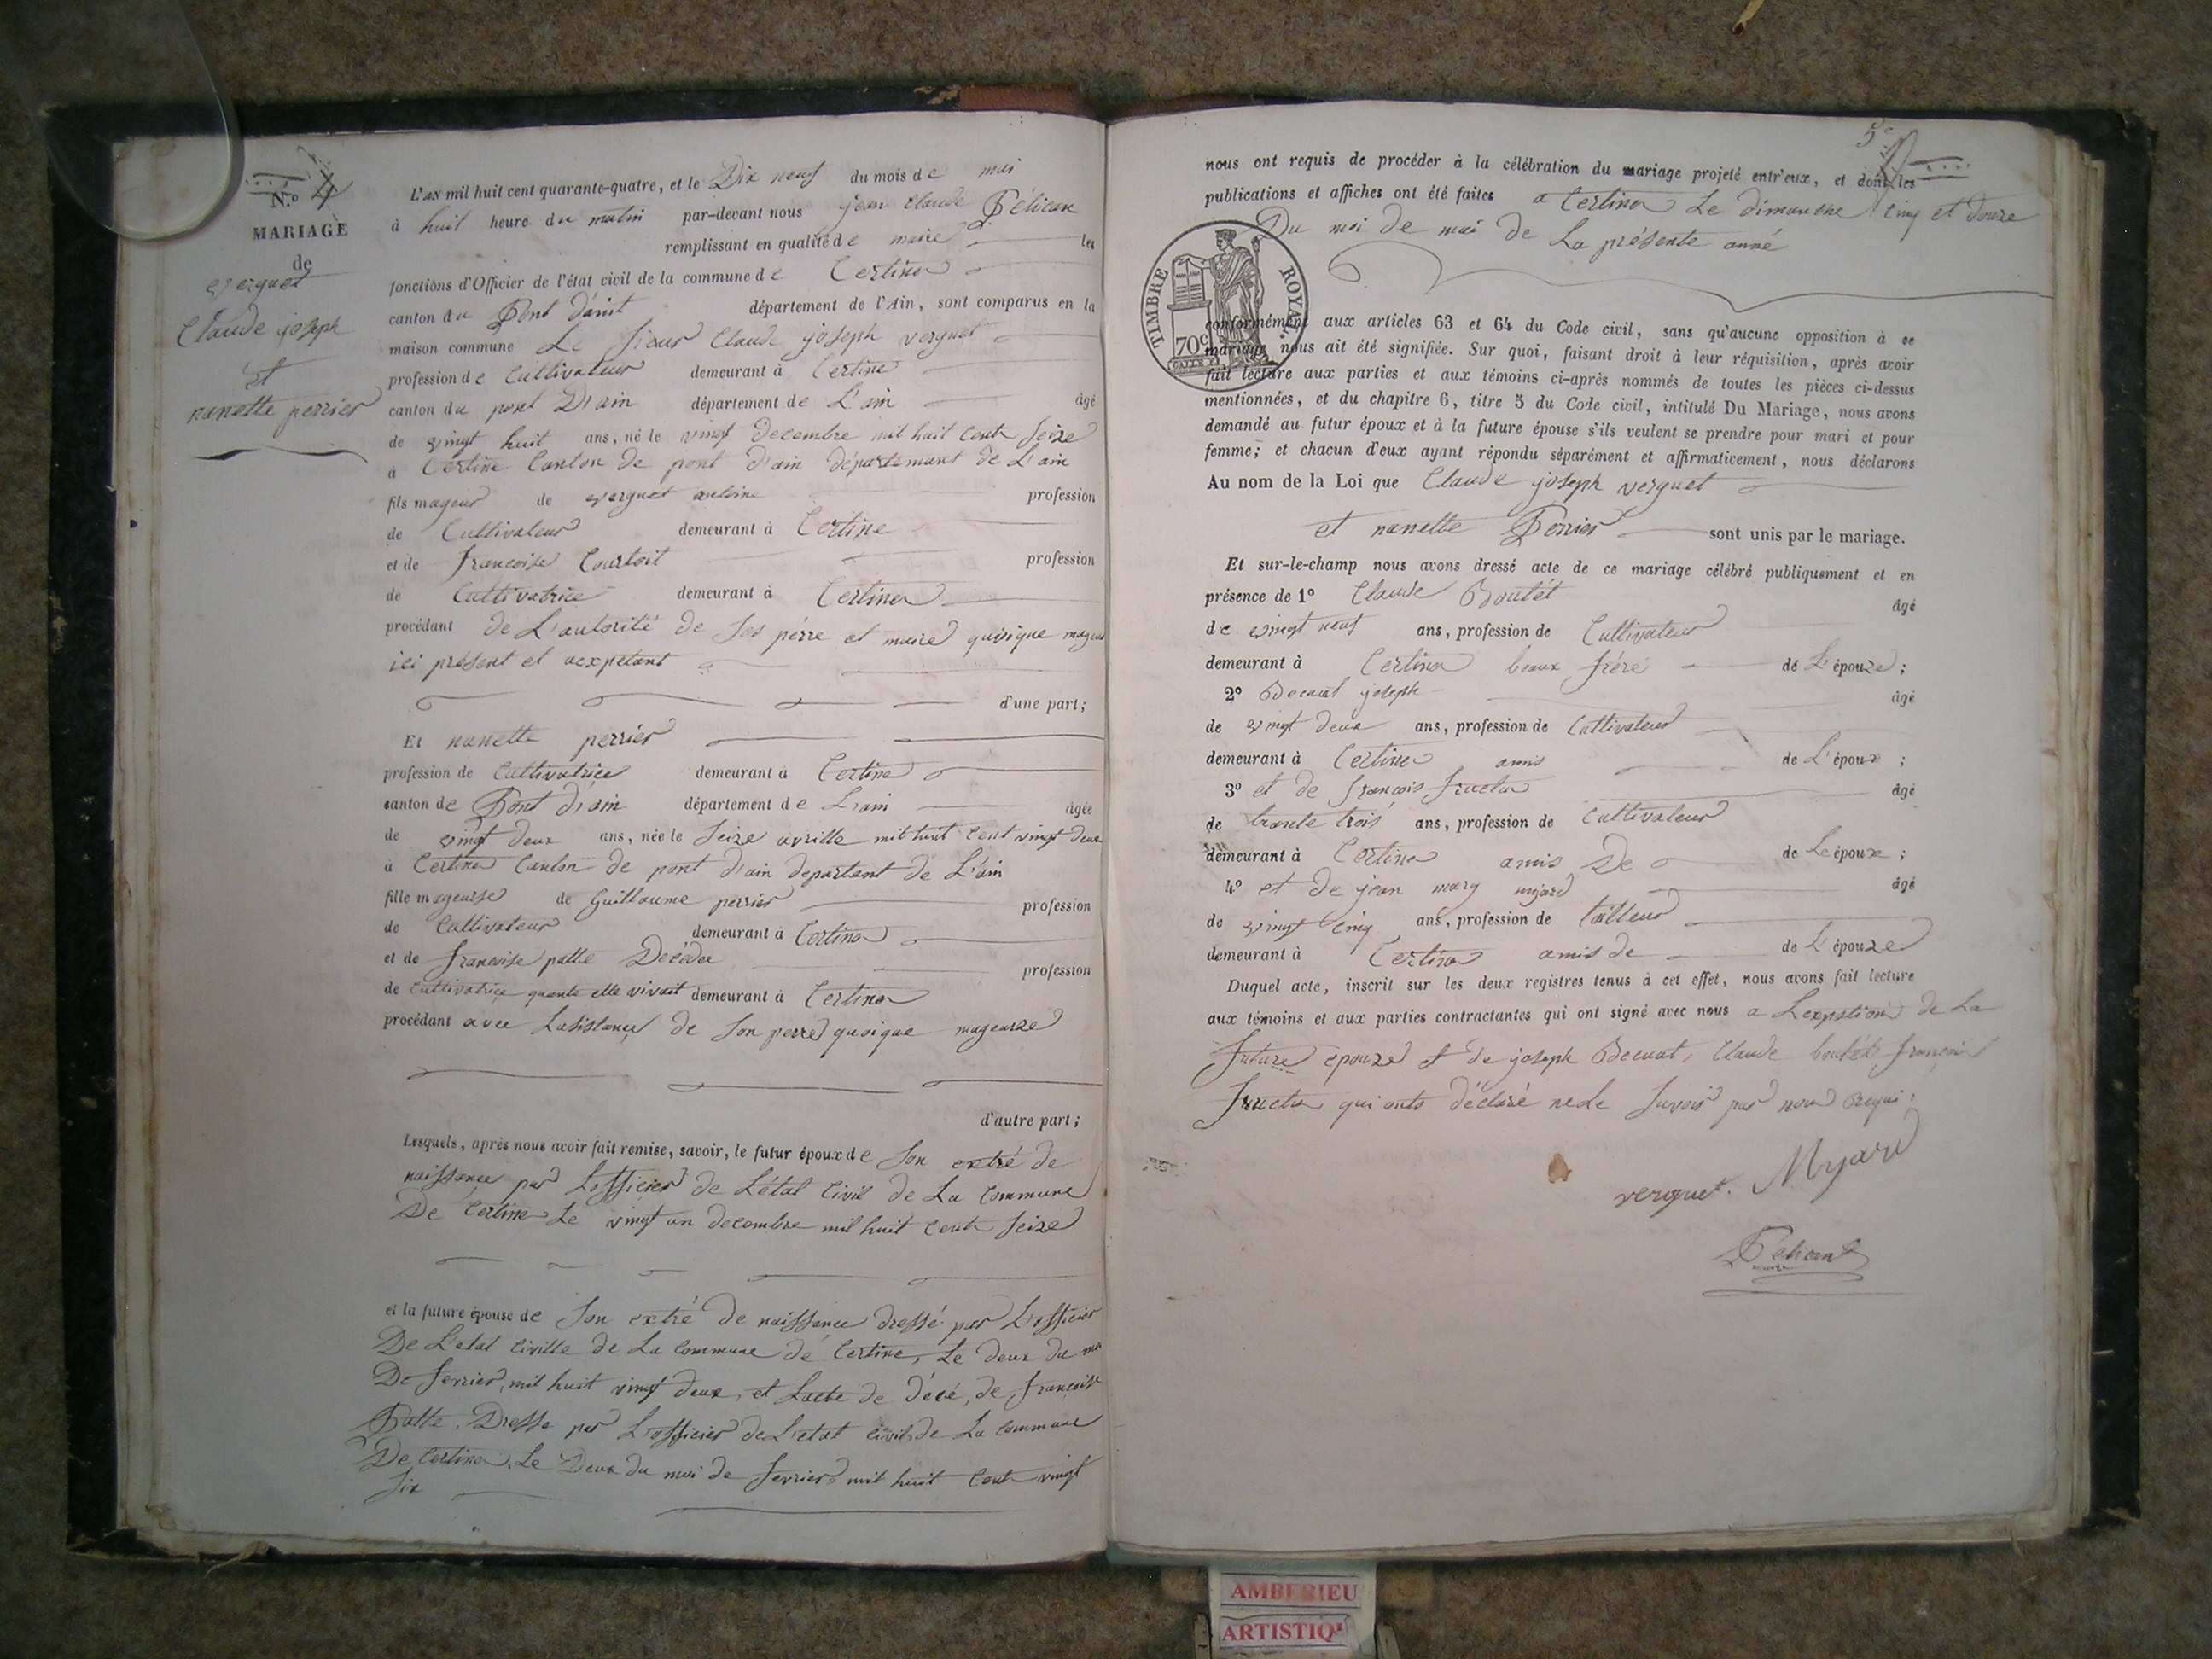 N.o 4
MARIAGE
de
verguet
Claude joseph
et
nanette perrier
L'an mil huit cent quarante-quatre, et le Dix neuf du mois de mai
à huit heure du matin par-devant nous jean Claude Pélican
remplissant en qualité de maire les
fonctions d'Officier de l'état civil de la commune de Certine
canton du Pont d'aint département de l'Ain, sont comparus en la
maison commune Le Sieur Claude joseph verguet
profession de Cultivateur demeurant à Certine
canton du pont D'ain département de L'ain âgé
de vingt huit ans, né le vingt decembre mil huit cent seize
à Certine Canton de pont d'ain département de L'ain
fils mageur de verguet antoine profession
de Cultivateur demeurant à Certine
et de francoise Courtoit profession
de Cultivatrice demeurant à Certine
procédant de L'autorité de ses pérre et maire quoique mageur
ici présent et acxpetant
d'une part;
Et nanette perrier
profession de Cultivatrice demeurant à Certine
canton de Pont d'ain département de L'ain âgée
de vingt deux ans, née le seize avrille mil huit cent vingt deux
à Certine Canton de pont d'ain departant de L'ain
fille mageurse de Guillaume perrier profession
de Cultivateur demeurant à Certine
et de francoise patte Décédée profession
de Cultivatrice quante elle vivait demeurant à Certine
procédant avec Lasistance de son perre quoique mageurze
d'autre part;
Lesquels, après nous avoir fait remise, savoir, le futur époux de son extré de
naissance par L'officier de L'état Civil de La Commune
De Certine Le vingt un decembre mil huit cent seize
et la future épouse de son extré de naissance dressé par L'officier
De L'etat Civille de La Commune dé Certine, Le deux du moi
De fevrier, mil huit vingt deux, et Lacte de décé, de françoise
Patte. Dresse par L'officier de L'etat civil de La commune
De Certine, Le Deux du moi de fevrier mil huit Cent vingt
six
5e
nous ont requis de procéder à la célébration du mariage projeté entr'eux, et dont les
publications et affiches ont été faites a Certine Le dimanche cinq et douze
Du moi de mai de La présente anné
TIMBRE ROYAL.
70c
conformément aux articles 63 et 64 du Code civil, sans qu'aucune opposition à ce
mariage nous ait été signifiée. Sur quoi, faisant droit à leur réquisition, après avoir
fait lecture aux parties et aux témoins ci-après nommés de toutes les pièces ci-dessus
mentionnées, et du chapitre 6, titre 5 du Code civil, intitulé Du Mariage, nous avons
demandé au futur époux et à la future épouse s'ils veulent se prendre pour mari et pour
femme; et chacun d'eux ayant répondu séparément et affirmativement, nous déclarons
Au nom de la Loi que Claude joseph verguet
et nanette Perrier sont unis par le mariage.
Et sur-le-champ nous avons dressé acte de ce mariage célébré publiquement et en
présence de 1o Claude Boutét âgé
de vingt neuf ans, profession de Cultivateur
demeurant à Certine beaux frére de L'épouze;
2o Becuat joseph âgé
de vingt deux ans, profession de Cultivateur
demeurant à Certine amis de L'époux;
3o et de francois fructu âgé
de trante trois ans, profession de Cultivateur
demeurant à Certine amis De de Le époux;
4o et de jean mary myard âgé
de vingt Cinq ans, profession de tailleur
demeurant à Certine amis de de L'épouze
Duquel acte, inscrit sur les deux registres tenus à cet effet, nous avons fait lecture
aux témoins et aux parties contractantes qui ont signé avec nous a Lexpstion de La
future epouze et de joseph Becuat, Claude boutet françois
fructu qui onts déclaré ne Le savoir par nous requi.
verguet. Myard
Pelican
AMBERIEU
ARTISTIQ